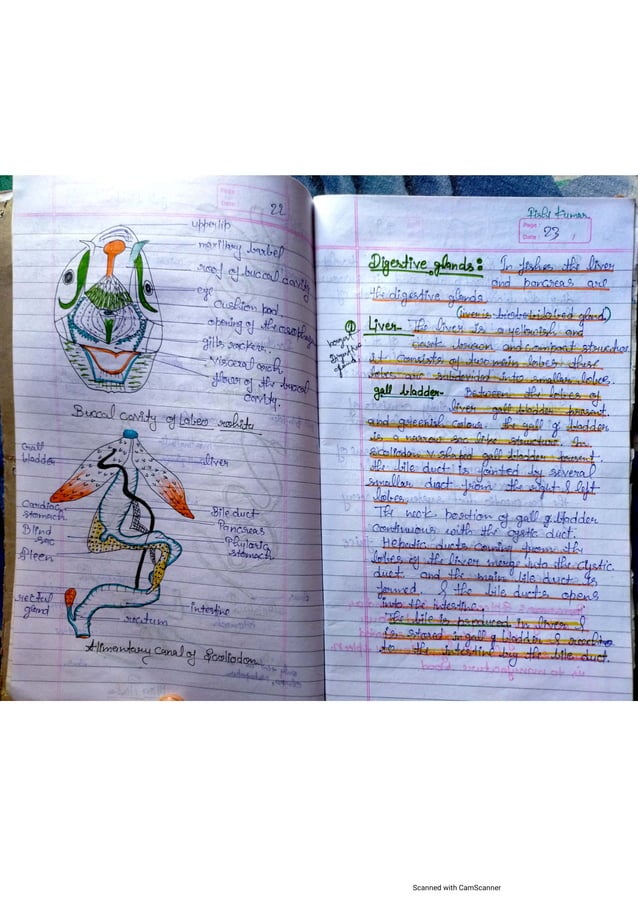 Page :
Date :
22
upper lip
maxillary barbel
roof of buccal cavity
eye
cushion pad.
opening of the
gills rackers.
Visceral arch
floor of the buccal
cavity.
Buccal Cavity of Labeo rohita
Gall
bladder
liver
Cardiac
stomach.
Blind
sac
Sleen
Bile duct
Pancreas
Phyloric
stomach
rectul
gland
rectum
intestine
Alimentary Canal of Scoliodon
Page : 23
Date :
Digestive glands : In fishes the liver
and pancreas are
the digestive glands.
(liver is bilobed gland)
① Liver- The liver is a yellowish and
largest
Digestive
gland
it consists of two main lobes these
lobes are subdivided into smaller lobes.
gall bladder- Between the lobes of
liver gall bladder present
and greenish colour. the gall bladder
is a narrow sac like structure. In
scoliodon v shaped gall bladder present.
the bile duct is formed by several
smaller duct from the right & left
lobes.
The neck position of gall bladder
continuous with the cystic duct.
Hepatic ducts coming from the
lobes of the liver merge into the cystic
duct and the main bile duct is
formed. & the bile ducts opens
into the intestine.
The bile is produced in liver &
is stored in gall bladder &
to the intestine by the bile duct.
Scanned with CamScanner